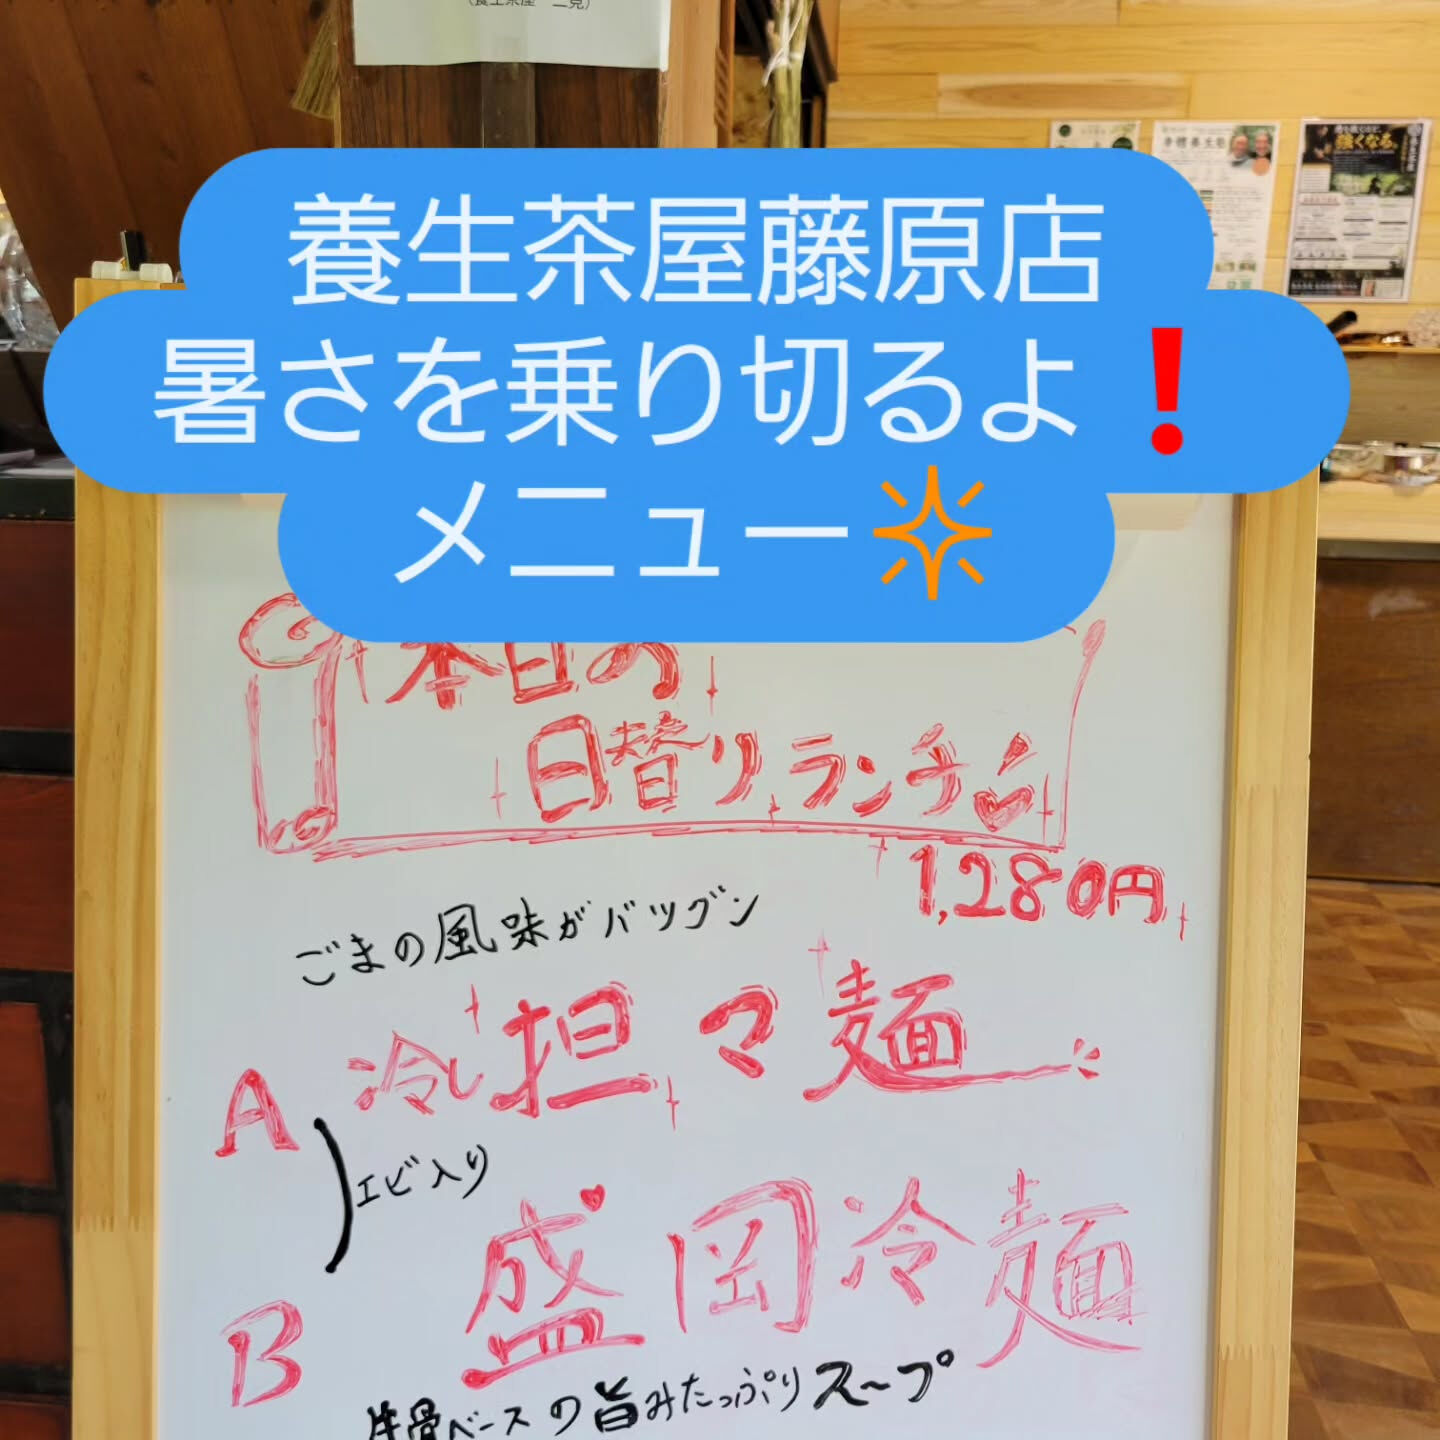 (養生茶屋 二見)
強くなる。
養生茶屋藤原店
暑さを乗り切るよ❗
メニュー🔆
本日の
日替りランチ
1,280円
ごまの風味がバツグン
A 冷し担々麺
エビ入り
B 盛岡冷麺
牛骨ベースの旨みたっぷりスープ